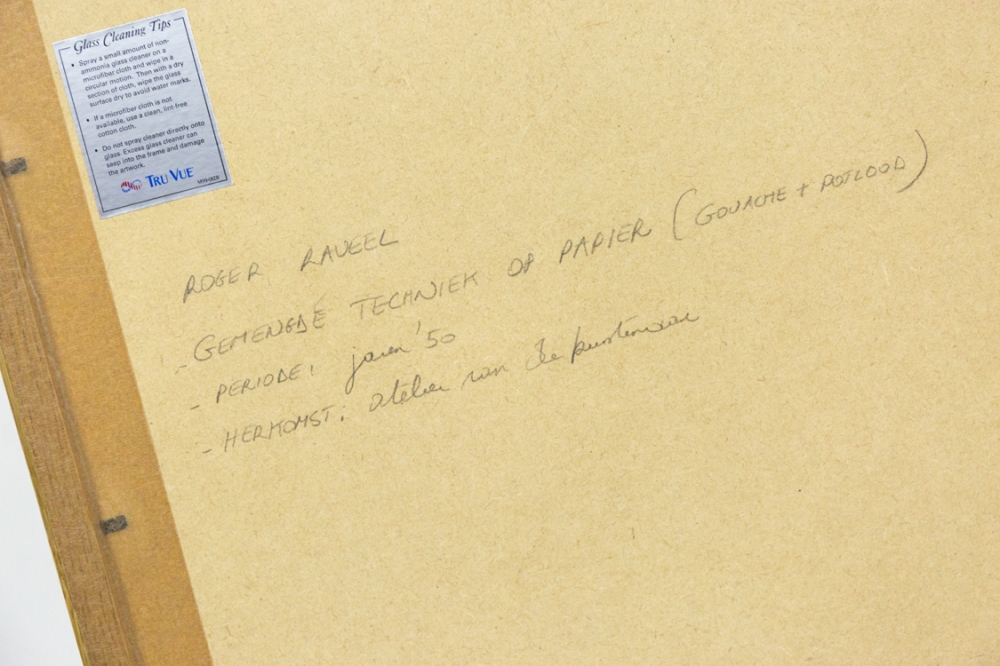 Glass Cleaning Tips
• Spray a small amount of non-
ammonia glass cleaner on a
microfiber cloth and wipe in a
circular motion. Then with a dry
section of cloth, wipe the glass
surface dry to avoid water marks.
• If a microfiber cloth is not
available, use a clean, lint-free
cotton cloth.
• Do not spray cleaner directly onto
glass. Excess glass cleaner can
seep into the frame and damage
the artwork.
TRU VUE
ROGER RAVEEL
- GEMENGDE TECHNIEK OP PAPIER (GOUACHE + POTLOOD)
- PERIODE: jaren '50
- HERKOMST: atelier van de kunstenaar